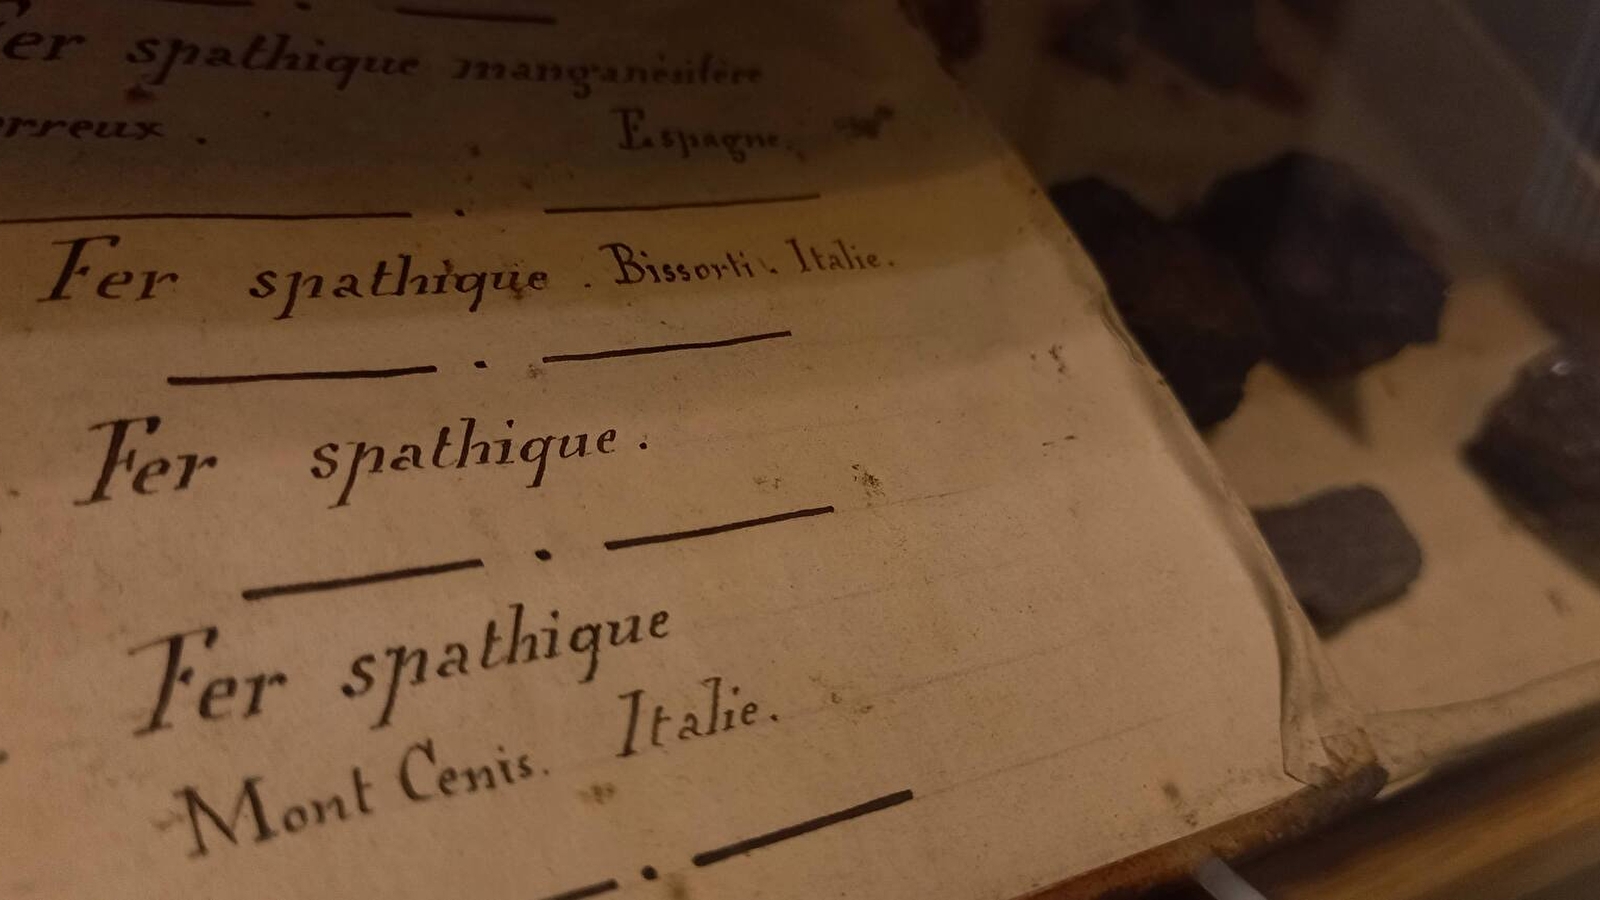 Fer spathique manganésifère
erreux .
Espagne.
Fer spathique . Bissorti . Italie.
Fer spathique .
Fer spathique
Mont Cenis. Italie.